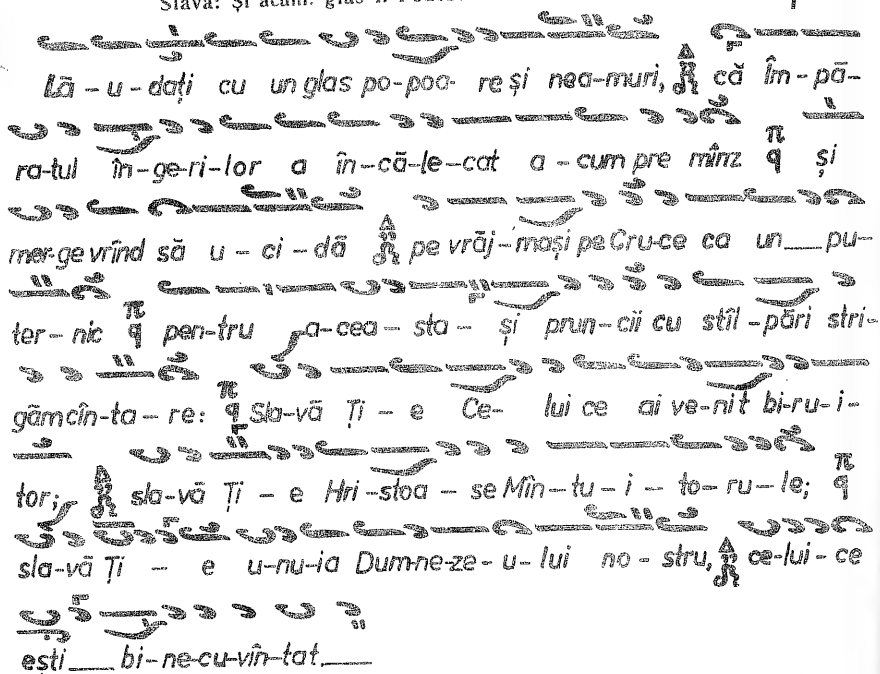 Slavă: Și acum: glas
Lă – u – dați cu un glas po-poa- re și nea-muri, că Îm – pă–
ra-tul în-ge-ri-lor a în-că-le-cat a – cum pre mînz π q și
mer-ge vrînd să u – ci – dă pe vrăj – mași pe Cru-ce ca un___ pu–
ter – nic π q pen-tru a-cea – sta – și prun-cii cu stîl-pări stri-
găm cîn-ta – re: π q Sla-vă Ți – e Ce- lui ce ai ve-nit bi-ru-i-
tor; sla-vă Ți – e Hri-stoa – se Mîn-tu – i – to– ru – le; π q
sla-vă Ți – e u-nu-ia Dum-ne-ze – u – lui no – stru, ce-lui – ce
ești___ bi-ne-cu-vîn-tat.___